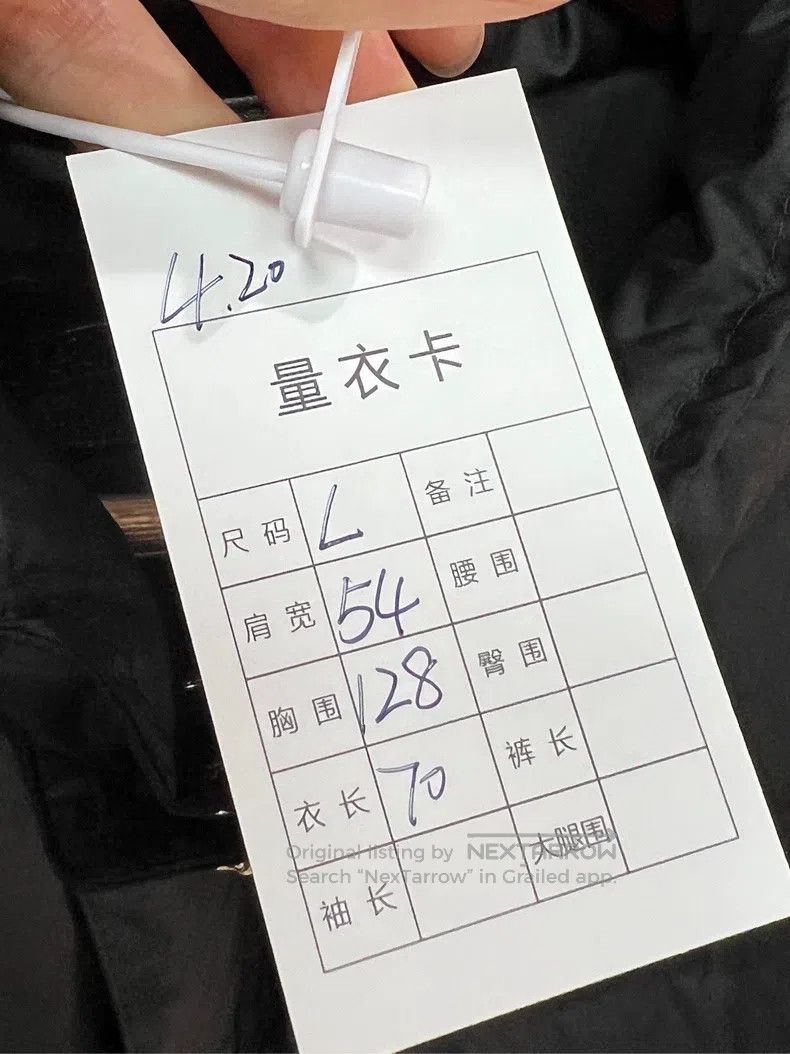 4.20
量衣卡
尺码 L 备注
肩宽 54 腰围
胸围 128 臀围
衣长 70 裤长
袖长 大腿围
Original listing by NEXTARROW
Search "NexTarrow" in Grailed app.